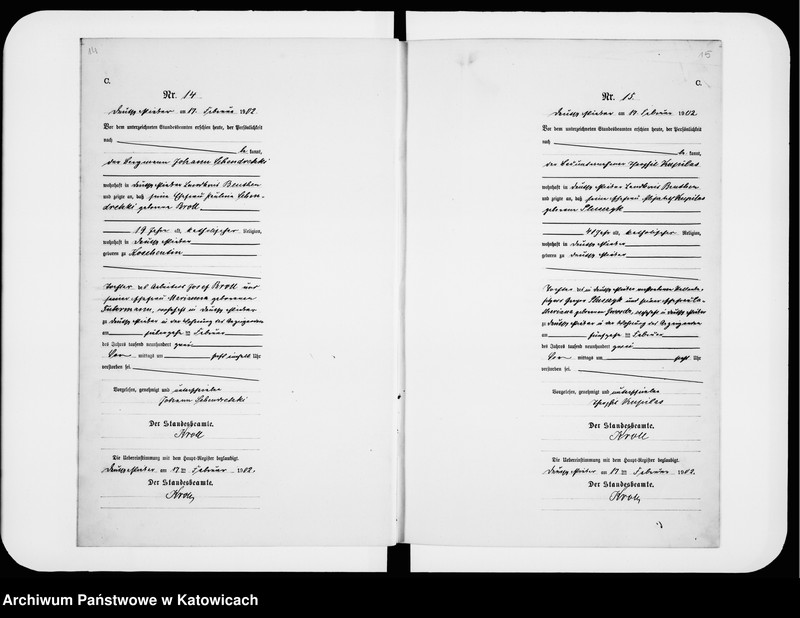 14
C.
Nr. 14
Deutsch Piekar am 17. Februar 1902
Vor dem unterzeichneten Standesbeamten erschien heute, der Persönlichkeit
nach
be kannt,
der Bergmann Johann
wohnhaft in Deutsch Piekar Landkreis Beuthen
und zeigte an, daß seine Ehefrau Pauline
geborene Broll
19 Jahre alt, katholischer Religion,
wohnhaft in Deutsch Piekar
geboren zu Koschentin
Tochter des Arbeiters Josef Broll und
seiner Ehefrau Marianna geborenen
wohnhaft in Deutsch Piekar
zu Deutsch Piekar in der Wohnung des Anzeigenden
am Februar
des Jahres tausend neunhundert zwei
Vor mittags um Uhr
verstorben sei.
Vorgelesen, genehmigt und unterschrieben
Johann
Der Standesbeamte.
Kroll
Die Uebereinstimmung mit dem Haupt-Register beglaubigt.
Deutsch Piekar am 17ten Februar 1902.
Der Standesbeamte.
Kroll
15
C.
Nr. 15.
Deutsch Piekar am 17. Februar 1902
Vor dem unterzeichneten Standesbeamten erschien heute, der Persönlichkeit
nach
be kannt,
der Theophil Kupilas
wohnhaft in Deutsch Piekar Landkreis Beuthen
und zeigte an, daß seine Ehefrau Kupilas
geborene
41 Jahre alt, katholischer Religion,
wohnhaft in Deutsch Piekar
geboren zu Deutsch Piekar
Tochter des in Deutsch Piekar verstorbenen
und seiner Ehefrau
geborenen wohnhaft in Deutsch Piekar
zu Deutsch Piekar in der Wohnung des Anzeigenden
am Februar
des Jahres tausend neunhundert zwei
Vor mittags um Uhr
verstorben sei.
Vorgelesen, genehmigt und unterschrieben
Theophil Kupilas
Der Standesbeamte.
Kroll
Die Uebereinstimmung mit dem Haupt-Register beglaubigt.
Deutsch Piekar am 17ten Februar 1902.
Der Standesbeamte.
Kroll
Archiwum Państwowe w Katowicach